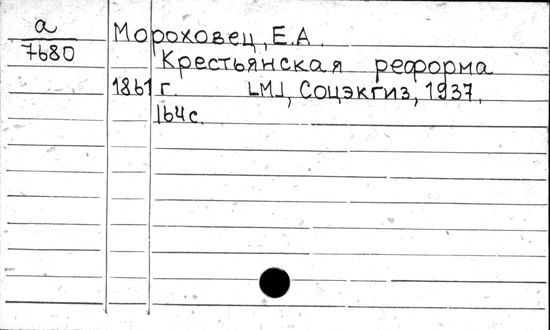 а
7680
Мороховец, Е.А.
Крестьянская реформа
1861 г. [М], Соцэкгиз, 1937.
164с.